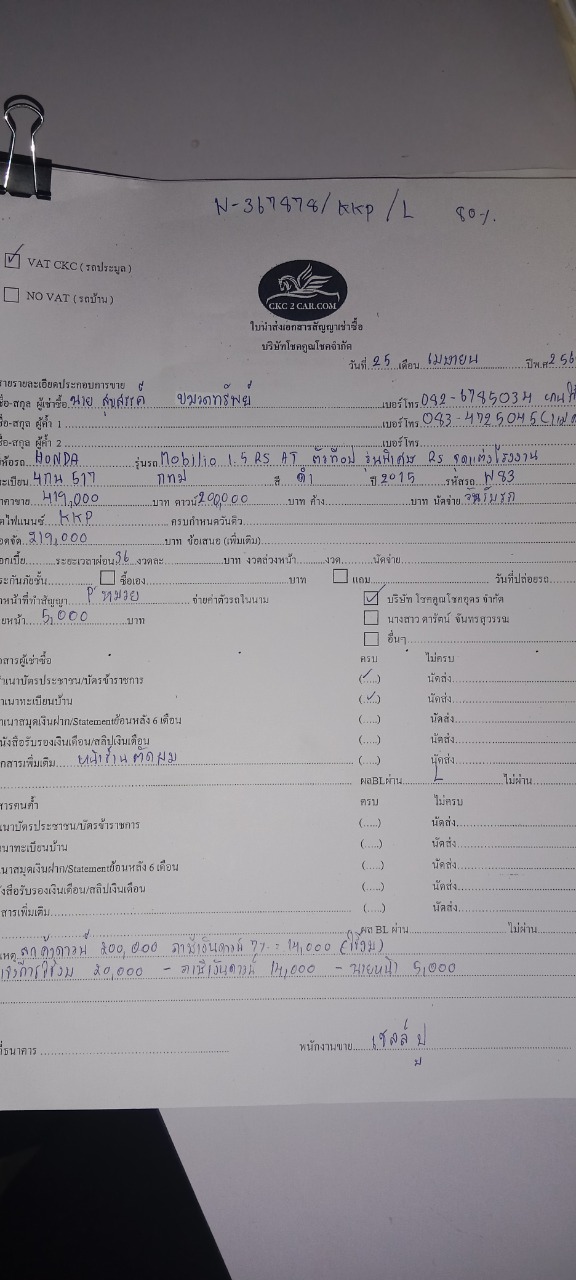 N-367878/KKP/L 80%
VAT CKC ( รถประมูล )
NO VAT ( รถบ้าน )
CKC 2 CAR.COM
ใบนำส่งเอกสารสัญญาเช่าซื้อ
บริษัทโชคคูณโชคจำกัด
วันที่ 25 เดือน เมษายน ปีพ.ศ 256
รายละเอียดประกอบการขาย
ชื่อ-สกุล ผู้เช่าซื้อ นาย เบอร์โทร 082-6785034
ชื่อ-สกุล ผู้ค้ำ 1 เบอร์โทร 083-4725045
ชื่อ-สกุล ผู้ค้ำ 2 เบอร์โทร
HONDA รุ่นรถ Mobilio 1.5 RS AT ตัวท็อป รุ่นพิเศษ RS ชุดแต่งโรงงาน
ทะเบียน 4กน 577 กทม สี ดำ ปี 2015 รหัสรถ N83
ราคาขาย 419,000 บาท ดาวน์ 200,000 บาท ค้าง บาท นัดจ่าย วันรับรถ
ไฟแนนซ์ KKP ครบกำหนดวันดิว
ยอดจัด 219,000 บาท ข้อเสนอ (เพิ่มเติม)
ดอกเบี้ย ระยะเวลาผ่อน 36 งวดละ บาท งวดล่วงหน้า งวด นัดจ่าย
ประกันภัยชั้น ซื้อเอง บาท แถม วันที่ปล่อยรถ
หน้าที่ทำสัญญา P'หมวย จ่ายค่าตัวรถในนาม บริษัท โชคคูณโชคคูตร จำกัด
นายหน้า 5,000 บาท นางสาว ดารัตน์ จันทรสุวรรณ
อื่นๆ
เอกสารผู้เช่าซื้อ ครบ ไม่ครบ
สำเนาบัตรประชาชน/บัตรข้าราชการ (.....) นัดส่ง
สำเนาทะเบียนบ้าน (.....) นัดส่ง
สำเนาสมุดเงินฝาก/Statementย้อนหลัง 6 เดือน (.....) นัดส่ง
หนังสือรับรองเงินเดือน/สลิปเงินเดือน (.....) นัดส่ง
เอกสารเพิ่มเติม หน้าร้านตัดผม (.....) นัดส่ง
ผลBLผ่าน L ไม่ผ่าน
เอกสารคนค้ำ ครบ ไม่ครบ
สำเนาบัตรประชาชน/บัตรข้าราชการ (.....) นัดส่ง
สำเนาทะเบียนบ้าน (.....) นัดส่ง
สำเนาสมุดเงินฝาก/Statementย้อนหลัง 6 เดือน (.....) นัดส่ง
หนังสือรับรองเงินเดือน/สลิปเงินเดือน (.....) นัดส่ง
เอกสารเพิ่มเติม (.....) นัดส่ง
ผล BL ผ่าน ไม่ผ่าน
เหตุ ลูกค้าดาวน์ 200,000 ภาษีเงินดาวน์ 7% = 14,000 (ใช้งบ)
20,000 - ภาษีเงินดาวน์ 14,000 - นายหน้า 5,000
ที่ธนาคาร พนักงานขาย เซลล์ ปู